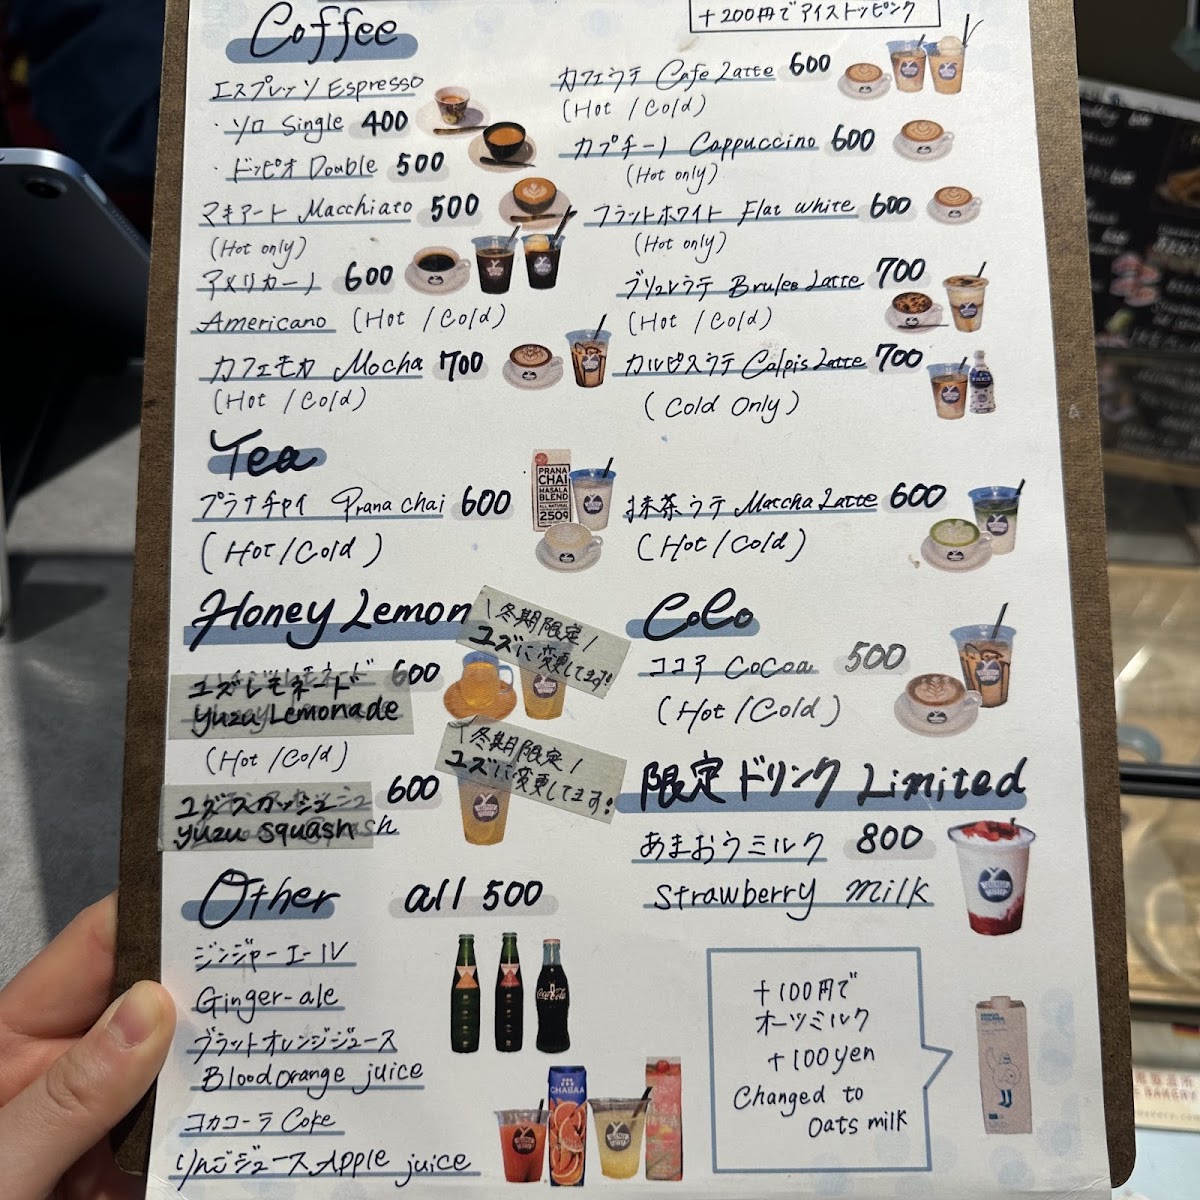 +200円でアイストッピング
Coffee
エスプレッソ Espresso
・ソロ Single 400
・ドッピオ Double 500
マキアート Macchiato 500
(Hot only)
アメリカーノ 600
Americano (Hot / Cold)
カフェモカ Mocha 700
(Hot / Cold)
カフェラテ Cafe Latte 600
(Hot / Cold)
カプチーノ Cappuccino 600
(Hot only)
フラットホワイト Flat white 600
(Hot only)
ブリュレラテ Brulee Latte 700
(Hot / Cold)
カルピスラテ Calpis Latte 700
(Cold Only)
Tea
プラナチャイ Prana chai 600
(Hot / Cold)
PRANA
CHAI
MASALA
BLEND
250g
抹茶ラテ Matcha Latte 600
(Hot / Cold)
Honey Lemon
\冬期限定/
ユズに変更してます!
ユズレモネード 600
yuzu Lemonade
(Hot / Cold)
\冬期限定/
ユズに変更してます!
ユズスカッシュ 600
yuzu squash
CoCo
ココア Cocoa 500
(Hot / Cold)
限定ドリンク Limited
あまおうミルク 800
Strawberry milk
Other all 500
ジンジャーエール
Ginger-ale
ブラットオレンジジュース
Blood orange juice
コカコーラ Coke
りんごジュース Apple juice
Coca-Cola
CHABAA
+100円で
オーツミルク
+100yen
Changed to
Oats milk